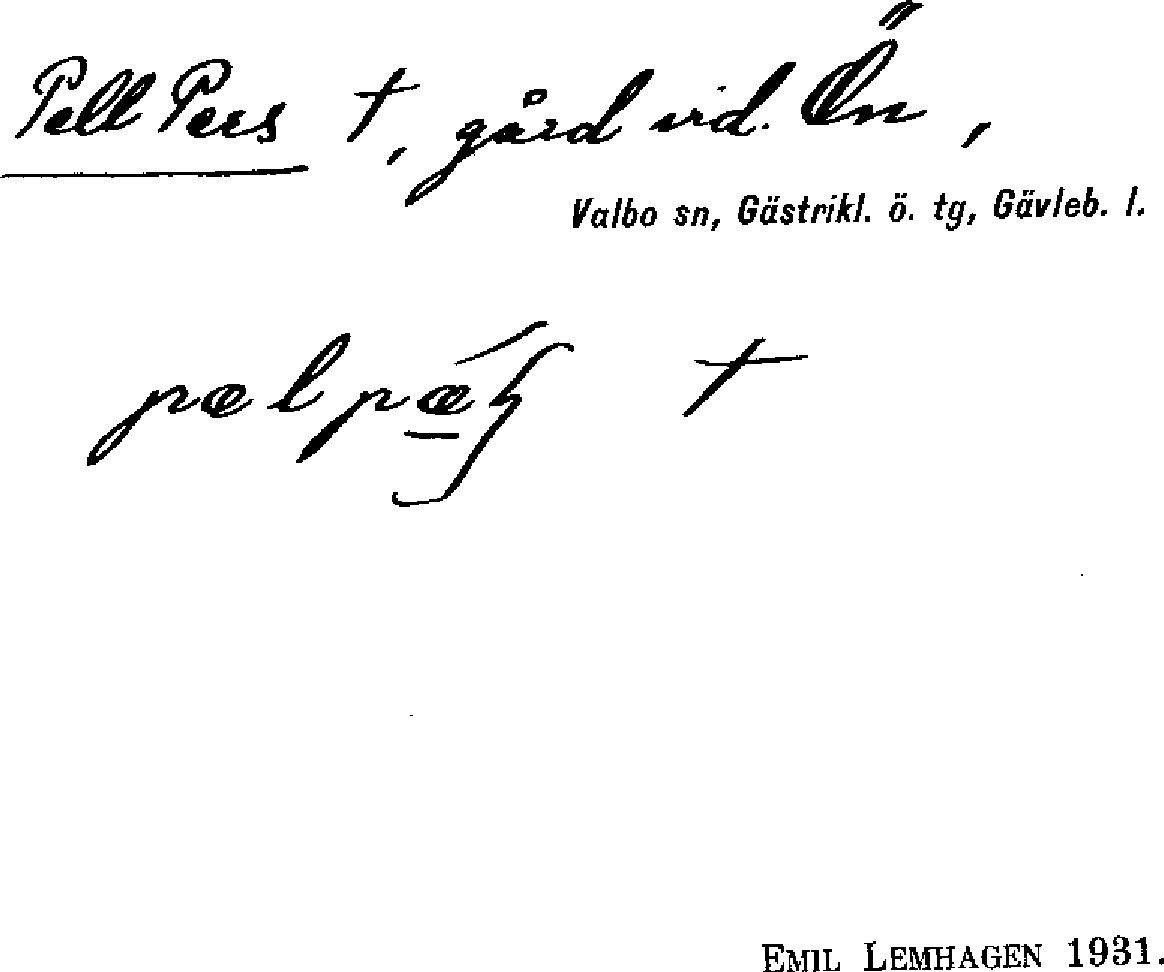 Pell Pers †, gård vid Ön,
Valbo sn, Gästrikl. ö. tg, Gävleb. l.
†
EMIL LEMHAGEN 1931.